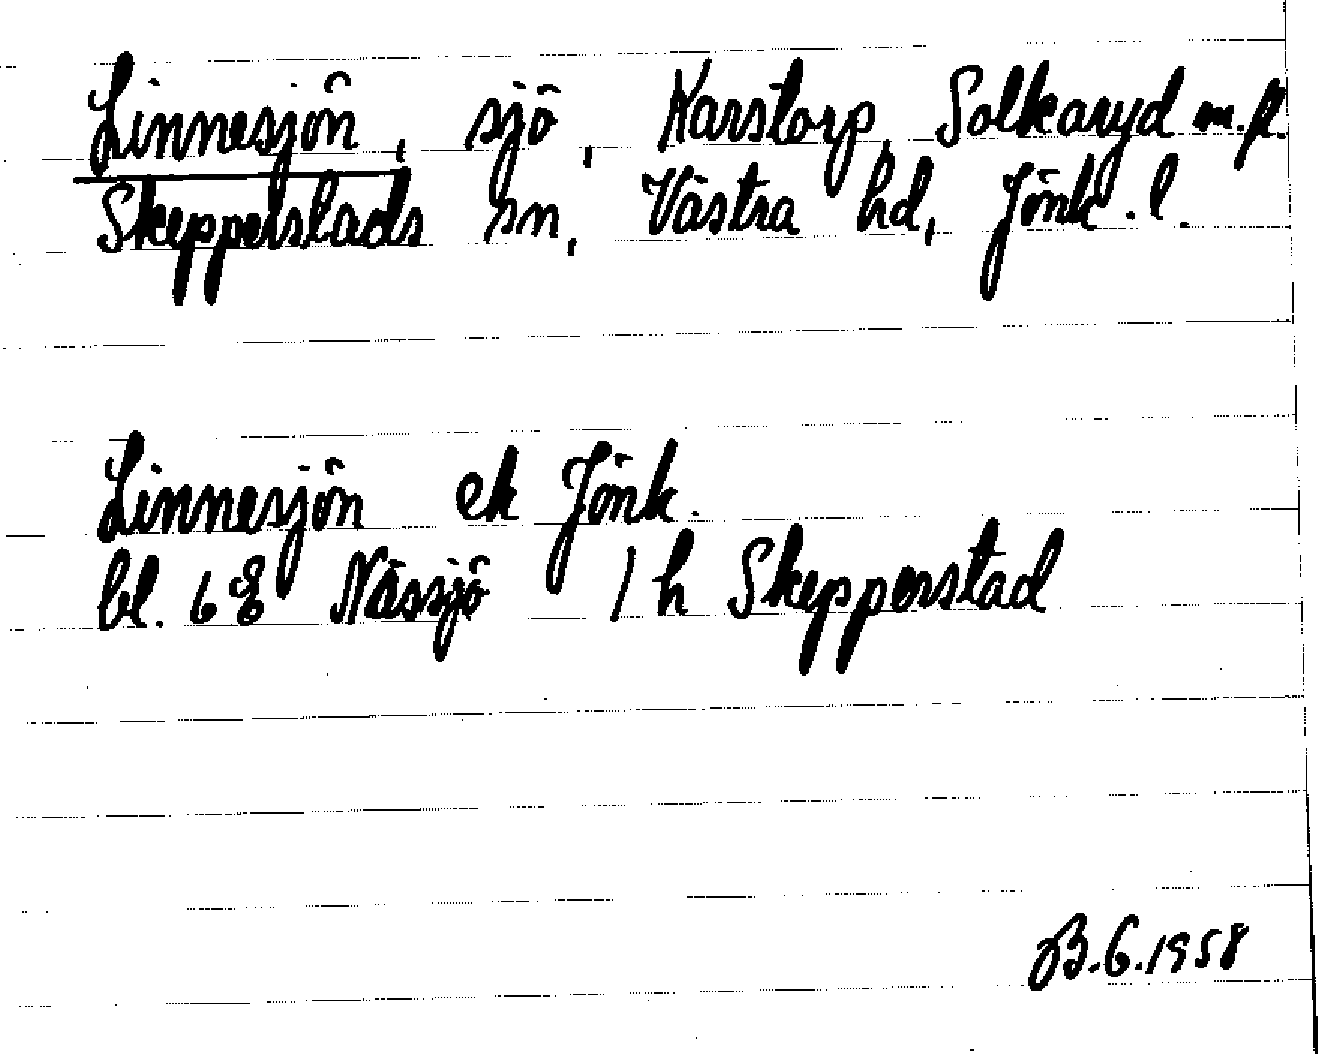 Linnesjön, sjö, Karstorp, Solkaryd m.fl.
Skepperstads sn, Västra hd, Jönk. l.
Linnesjön ek Jönk.
bl. 6 E Nässjö 1 h Skepperstad
B.G.1958